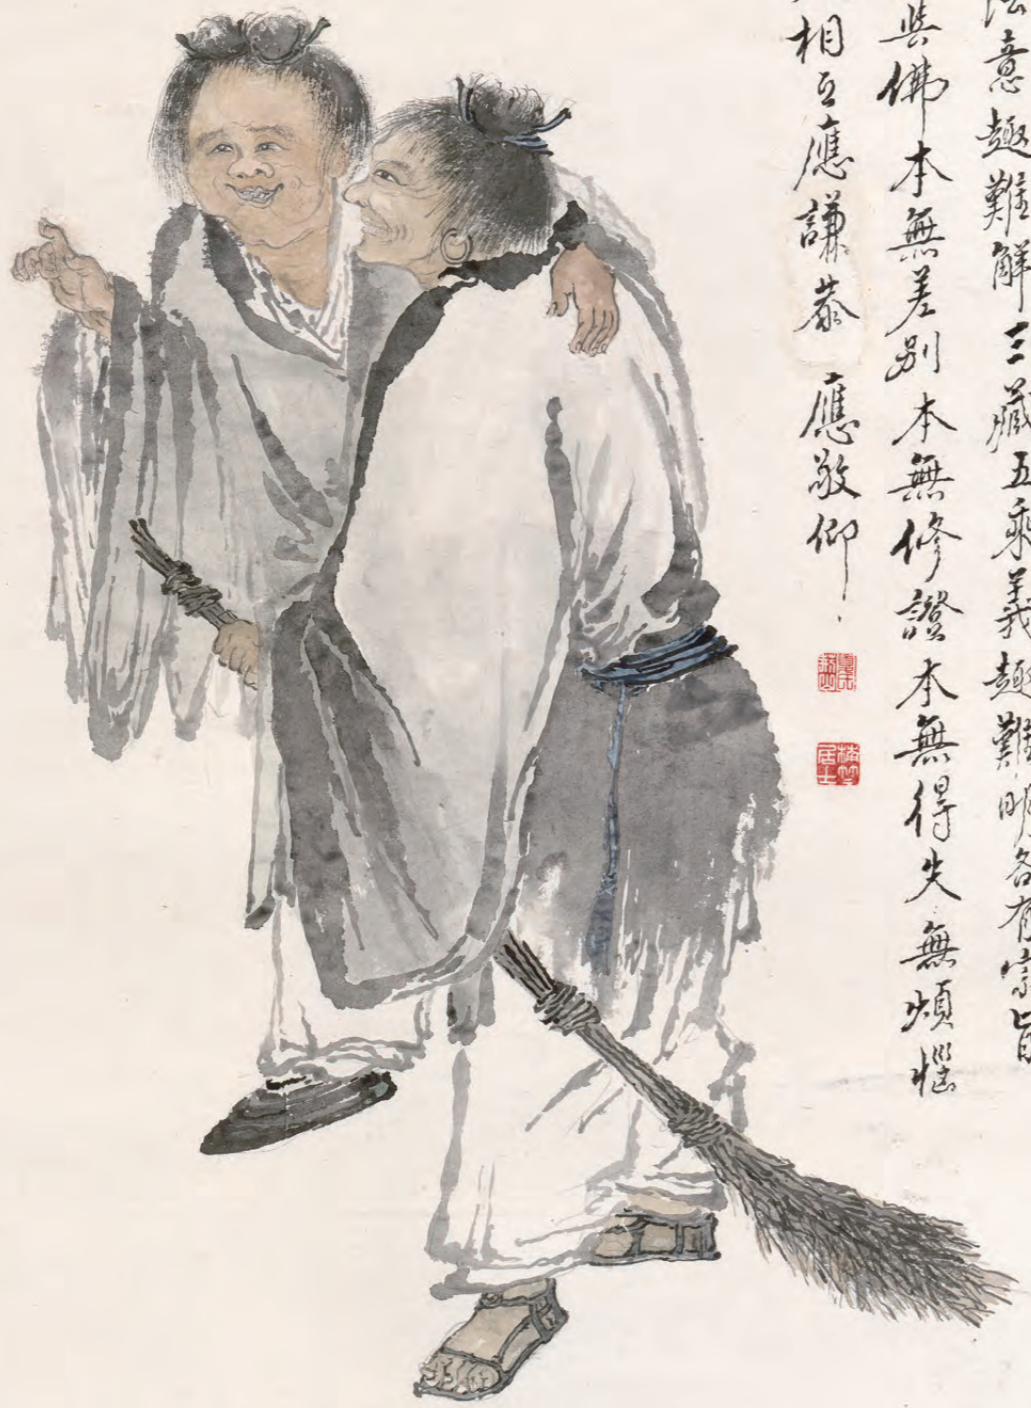 法意趣難解三藏五乘義趣難明各有宗旨
與佛本無差別本無修證本無得失無煩惱
相互應謙恭 應敬仰
居士